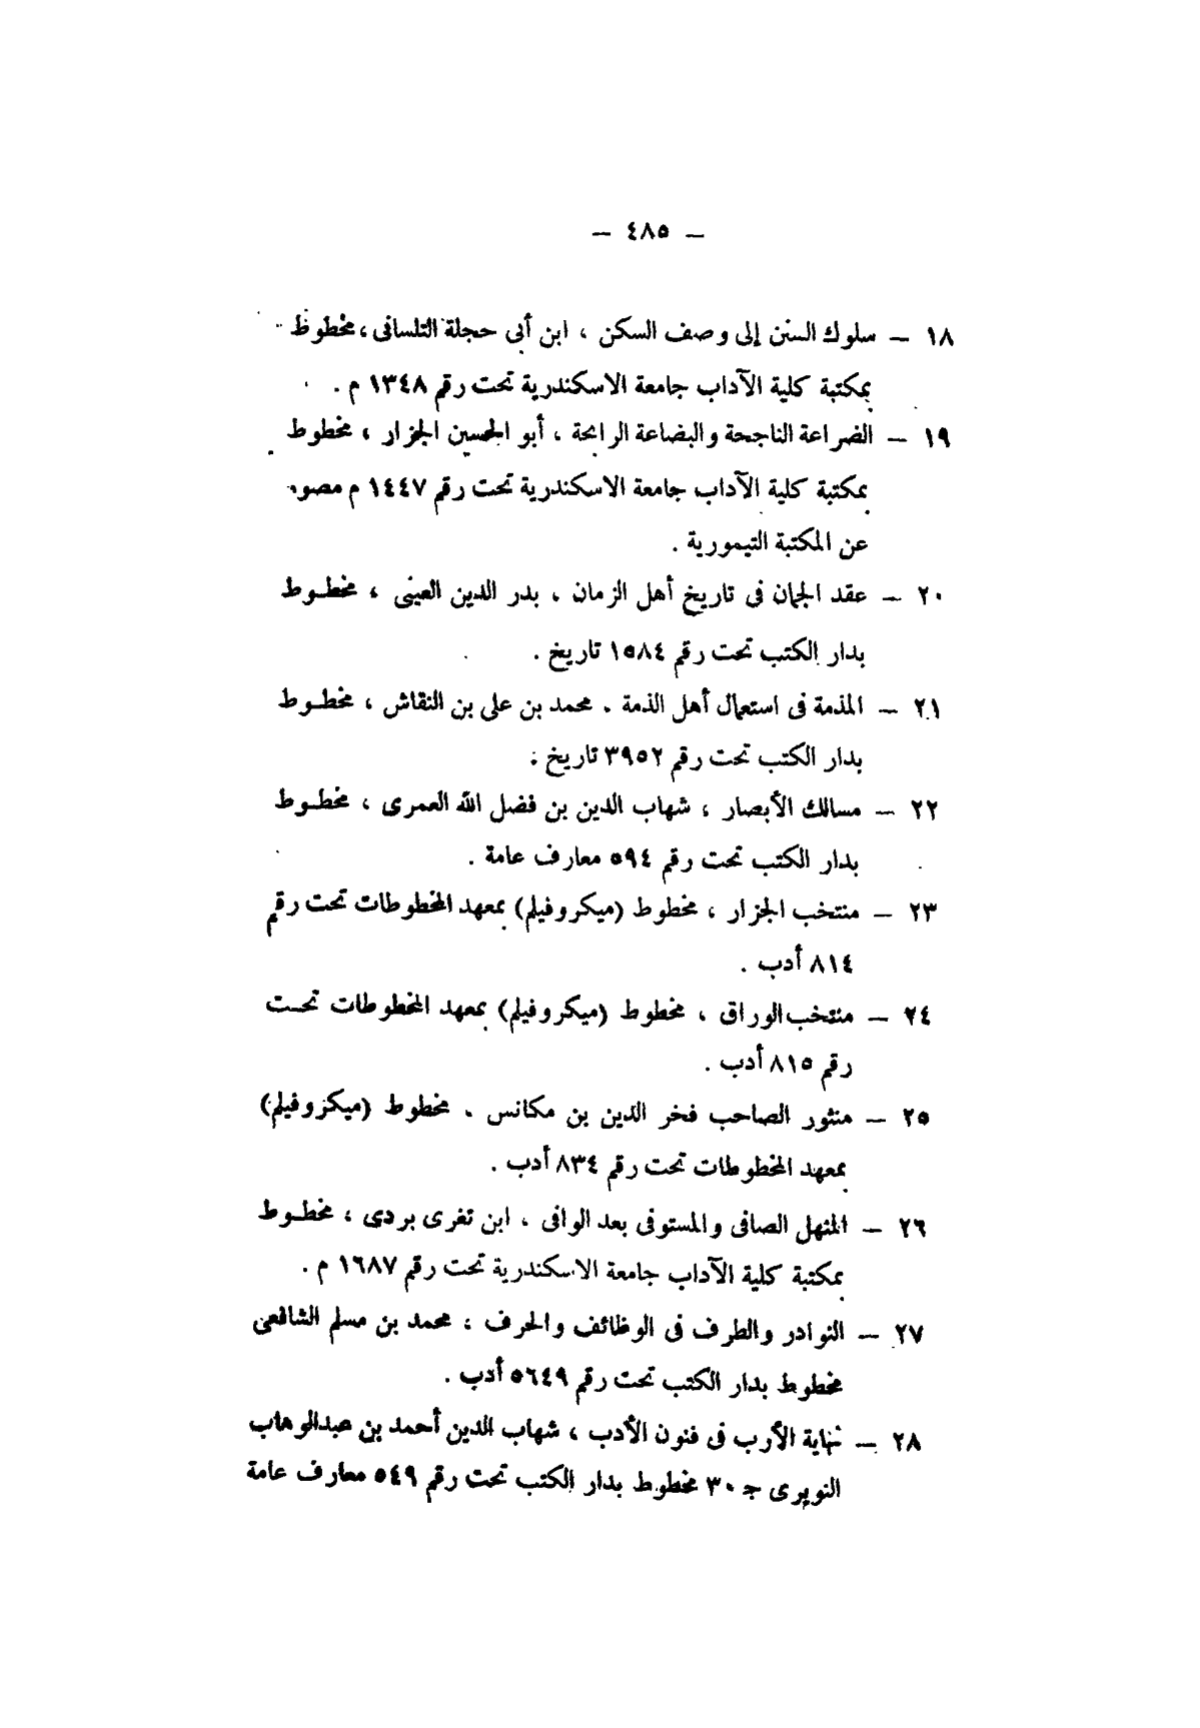 — ٤٨٥ —
١٨ — سلوك السنن إلى وصف السكن ، ابن أبى حجلة التلسافى ، مخطوظ
بمكتبة كلية الآداب جامعة الاسكندرية تحت رقم ١٣٤٨ م .
١٩ — الضراعة الناجحة والبضاعة الرابحة ، أبو الحسين الجزار ، مخطوط
بمكتبة كلية الآداب جامعة الاسكندرية تحت رقم ١٤٤٧ م مصور
عن المكتبة التيمورية .
٢٠ — عقد الجمان فى تاريخ أهل الزمان ، بدر الدين العينى ، مخطوط
بدار الكتب تحت رقم ١٥٨٤ تاريخ .
٢١ — المذمة فى استعمال أهل الذمة . محمد بن على بن النقاش ، مخطوط
بدار الكتب تحت رقم ٣٩٥٢ تاريخ .
٢٢ — مسالك الأبصار ، شهاب الدين بن فضل الله العمرى ، مخطوط
بدار الكتب تحت رقم ٥٩٤ معارف عامة .
٢٣ — منتخب الجزار ، مخطوط (ميكروفيلم) بمعهد المخطوطات تحت رقم
٨١٤ أدب .
٢٤ — منتخب الوراق ، مخطوط (ميكروفيلم) بمعهد المخطوطات تحت
رقم ٨١٥ أدب .
٢٥ — منثور الصاحب فخر الدين بن مكانس . مخطوط (ميكروفيلم)
بمعهد المخطوطات تحت رقم ٨٣٤ أدب .
٢٦ — المنهل الصافى والمستوفى بعد الوافى ، ابن تغرى بردى ، مخطوط
بمكتبة كلية الآداب جامعة الاسكندرية تحت رقم ١٦٨٧ م .
٢٧ — النوادر والطرف فى الوظائف والحرف ، محمد بن مسلم الشافعى
مخطوط بدار الكتب تحت رقم ٥٦٤٩ أدب .
٢٨ — نهاية الأرب فى فنون الأدب ، شهاب الدين أحمد بن عبدالوهاب
النويرى ج ٣٠ مخطوط بدار الكتب تحت رقم ٥٤٩ معارف عامة